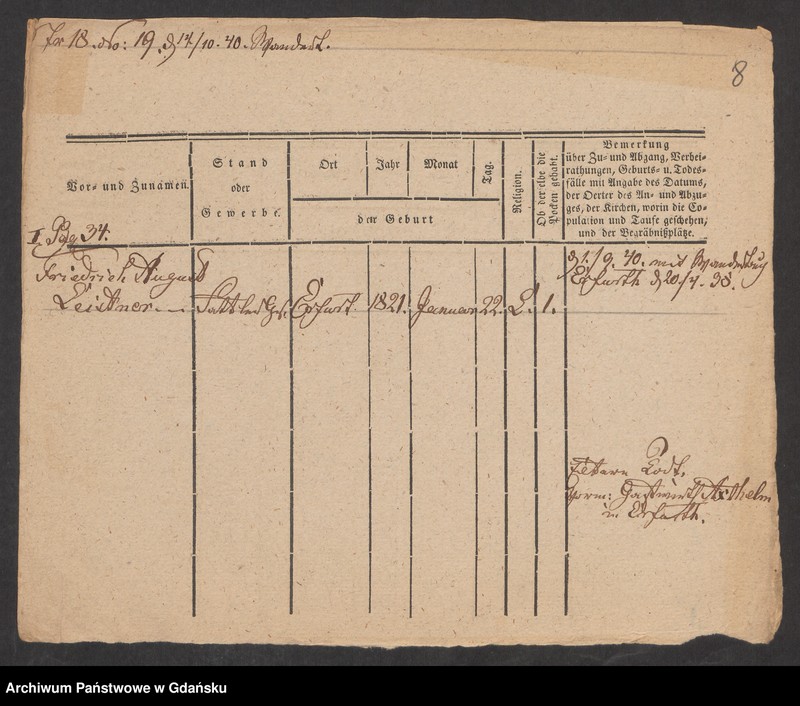 18. No: 19. d 14/10. 40. Wandert.
8
Vor- und Zunamen.
Stand
oder
Gewerbe.
Ort
Jahr
Monat
Tag.
der Geburt
Religion.
Ob der elbe die
Pocken gehabt.
Bemerkung
über Zu- und Abgang, Verhei-
rathungen, Geburts- u. Todes-
fälle mit Angabe des Datums,
der Oerter des An- und Abzu-
ges, der Kirchen, worin die Co-
pulation und Taufe geschehen,
und der Begräbnißplätze.
I. Pag 34.
Friedrich August
Leistner
Sattler Ges.
Erfurt
1821.
Januar
22.
E.
1.
d 1./9. 40. mit Wanderbuch
Erfurth d 20/4. 38.
Eltern todt.
Vorm: Gastwirth
in Erfurth.
Archiwum Państwowe w Gdańsku